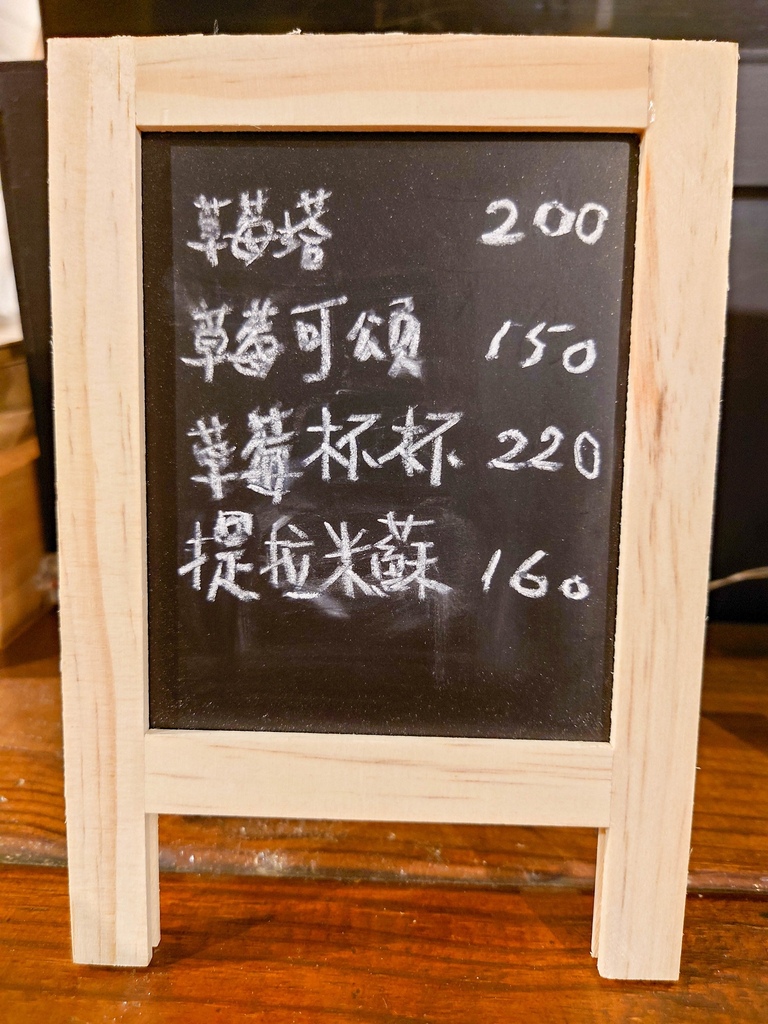 草莓塔 200
草莓可頌 150
草莓杯杯 220
提拉米蘇 160